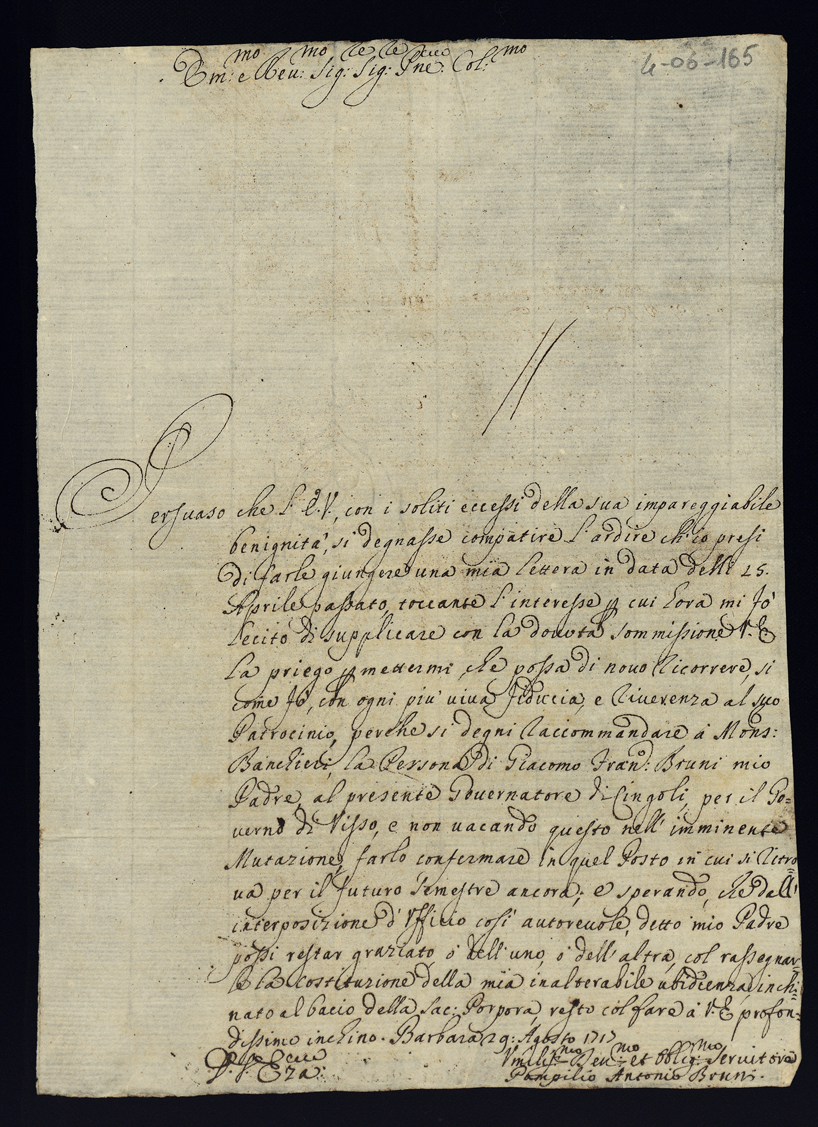 Em:mo e Reu:mo Sig:re Sig:re Pne: Col:mo
4-06-165
Persuaso che l'E.V., con i soliti eccessi della sua impareggiabile
benignità, si degnasse compatire l'ardire ch'io presi
di farle giungere una mia lettera in data delli 25.
Aprile passato, toccante l'interesse, p cui hora mi fò
lecito di supplicare con la douuta sommissione V. E.
la priego p mettermi, che possa di nouo ricorrere, si
come fò, con ogni più viua fiducia, e riuerenza al suo
Patrocinio, perche si degni raccommandare à Mons:
Banchieri, la Persona di Giacomo Fran: Bruni mio
Padre, al presente Gouernatore di Cingoli, per il Go=
uerno di Visso, e non uacando questo nell'imminente
Mutazione, farlo confermare in quel Posto in cui si ritro=
ua per il futuro semestre ancora; e sperando, che dall'
interposizione d'Vfficio così autoreuole, detto mio Padre
possi restar graziato, ò dell'uno, ò dell'altra, col rassegnar=
le la costituzione della mia inalterabile ubidienza, inchi=
nato al bacio della Sac: Porpora, resto col fare à V. E. profon=
dissimo inchino. Barbara 29: Agosto 1717
Vmiliss:mo Deu:mo et Oblig:mo Seruitore
Pampilio Antonio Bruni.